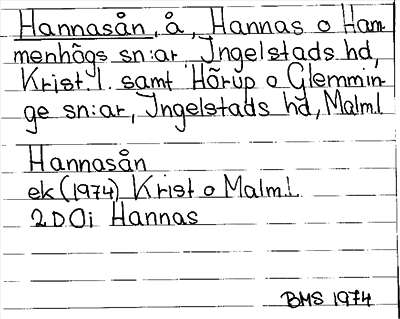 Hannasån, å, Hannas o Ham-
menhögs sn:ar, Ingelstads hd,
Krist. l. samt Hörup o Glemmin-
ge sn:ar, Ingelstads hd, Malm.l
Hannasån
ek (1974) Krist o Malm.l.
2D0i Hannas
BMS 1974